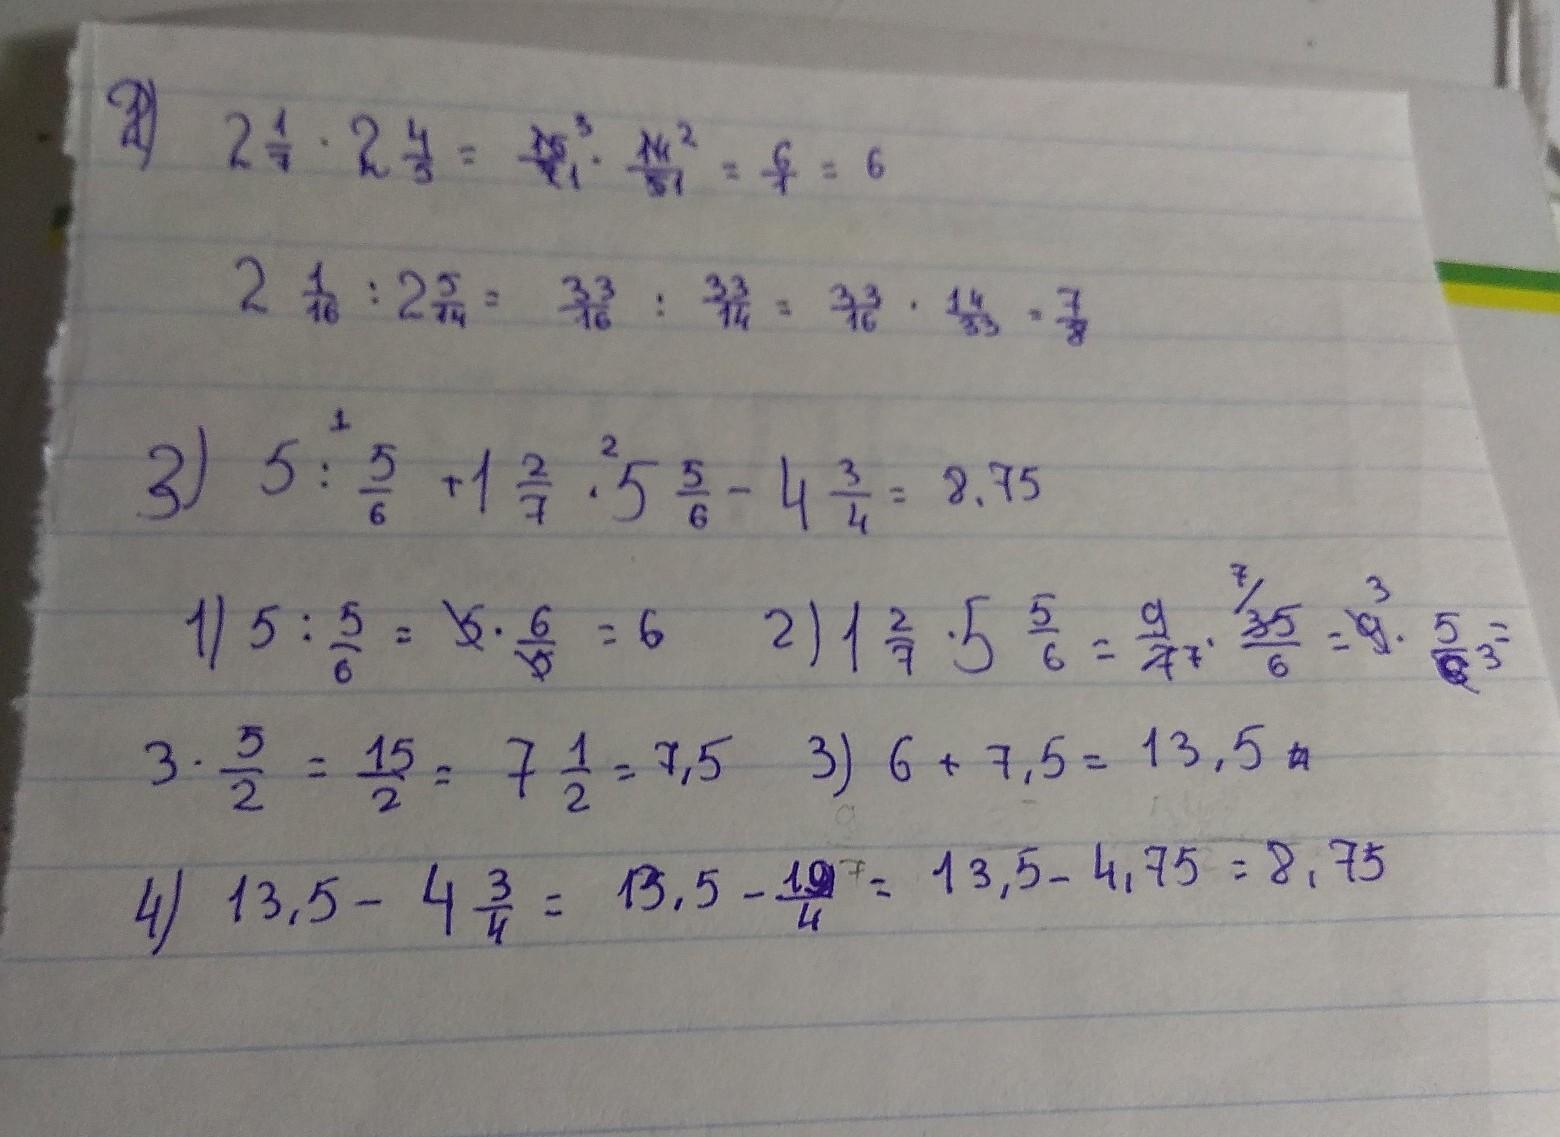 2) 2 1/7 · 2 4/5 = 15/7 ³₁ · 14/5 ²₁ = 6/1 = 6
2 1/16 : 2 5/14 = 33/16 : 33/14 = 33/16 · 14/33 = 7/8
3) 5 :¹ 5/6 + 1 2/7 ·² 5 5/6 - 4 3/4 = 8.75
1) 5 : 5/6 = 5 · 6/5 = 6 2) 1 2/7 · 5 5/6 = 9/7 · 35/6 = 9³ · 5/6 =
3 · 5/2 = 15/2 = 7 1/2 = 7,5 3) 6 + 7,5 = 13,5
4) 13,5 - 4 3/4 = 13,5 - 19/4 = 13,5 - 4,75 = 8,75